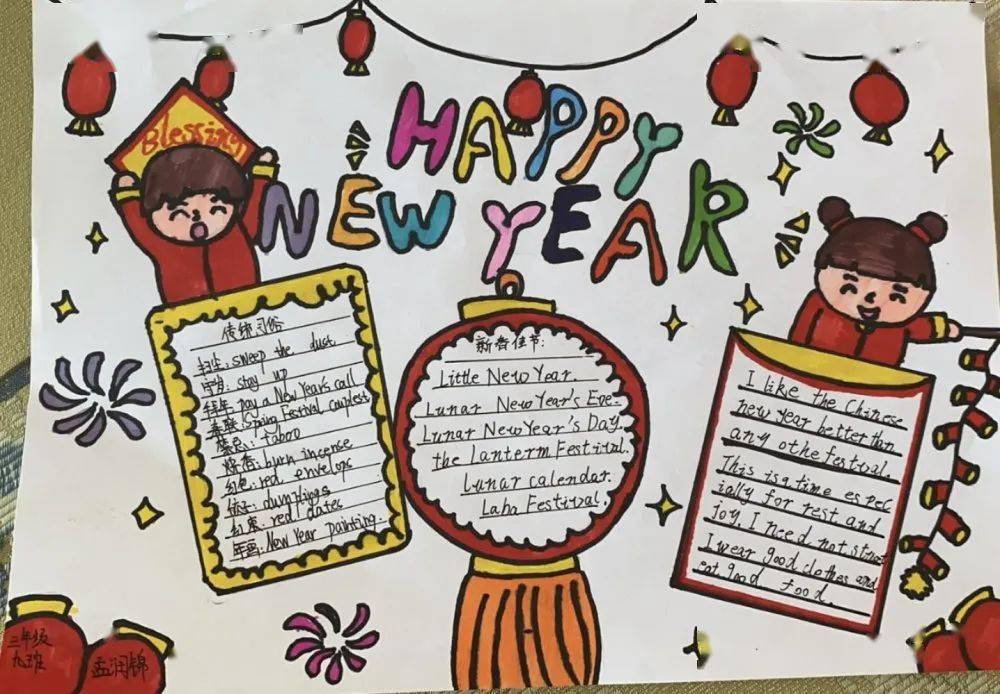 Blessing
HAPPY
NEW YEAR
传统习俗
扫尘: sweep the dust.
守岁: stay up
拜年: pay a New Year's call
春联: Spring Festival couplest
禁忌: taboo
烧香: burn incense
红包: red envelops
饺子: dumplings
红枣: red dates
年画: New Year painting.
新春佳节:
Little New Year.
Lunar New Year's Eve.
Lunar New Year's Day.
the Lanterm Festival.
Lunar calendar.
Laba Festival.
I like the Chinese
new year better than
any othe festival.
This is a time espec
ially for rest and
Joy. I need not study
I wear good clothes and
eat good food.
二年级
九班
孟润锦